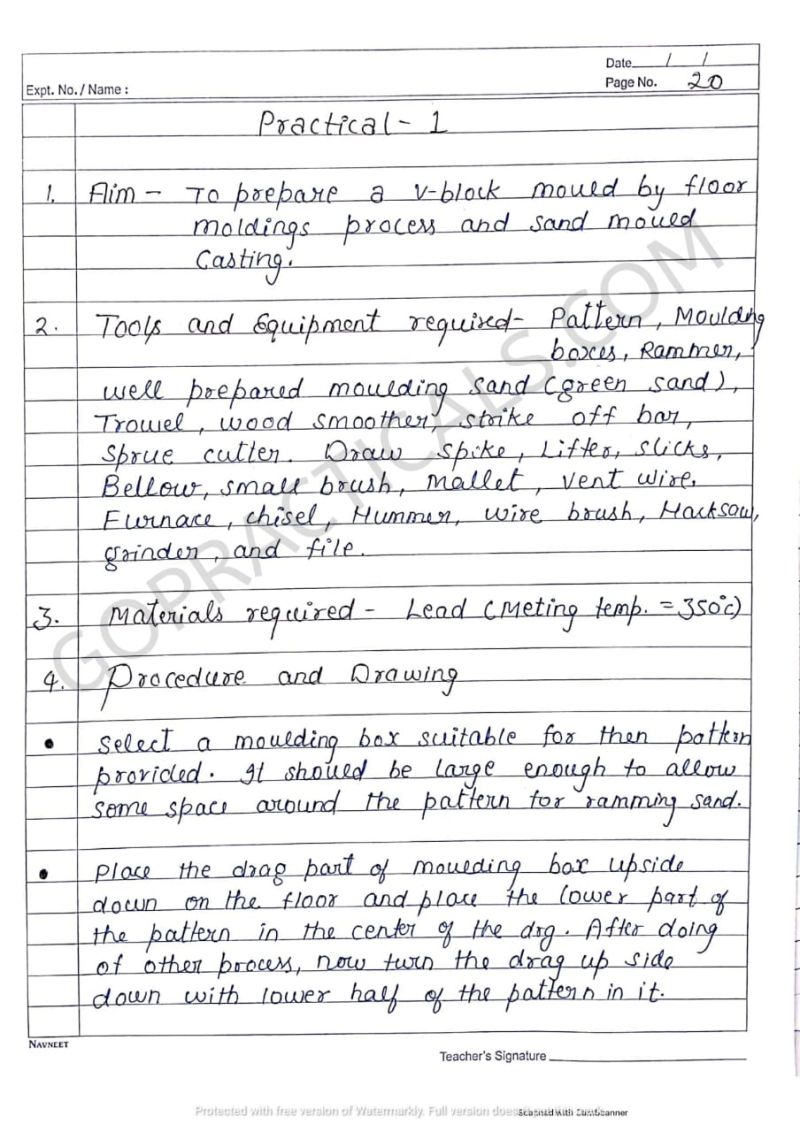 Date / /
Expt. No. / Name :
Page No. 20
Practical - 1
1. Aim - To prepare a V-block mould by floor
moldings process and sand mould
Casting.
2. Tools and Equipment required- Pattern, Moulding
boxes, Rammer,
well prepared moulding sand (green sand),
Trowel, wood smoother, strike off bar,
Sprue cutter. Draw spike, Lifter, Slicks,
Bellow, small brush, Mallet, Vent wire.
Furnace, chisel, Hummer, wire brush, Hacksaw,
grinder, and file.
3. Materials required - Lead (Meting temp. = 350°C)
4. Procedure and Drawing
• Select a moulding box suitable for then pattern
provided. It should be large enough to allow
some space around the pattern for ramming sand.
• Place the drag part of moulding box upside
down on the floor and place the lower part of
the pattern in the center of the drg. After doing
of other process, now turn the drag up side
down with lower half of the pattern in it.
NAVNEET
Teacher's Signature
GOPRACTICALS.COM
Protected with free version of Watermarkly. Full version doesn't
Scanned with CamScanner